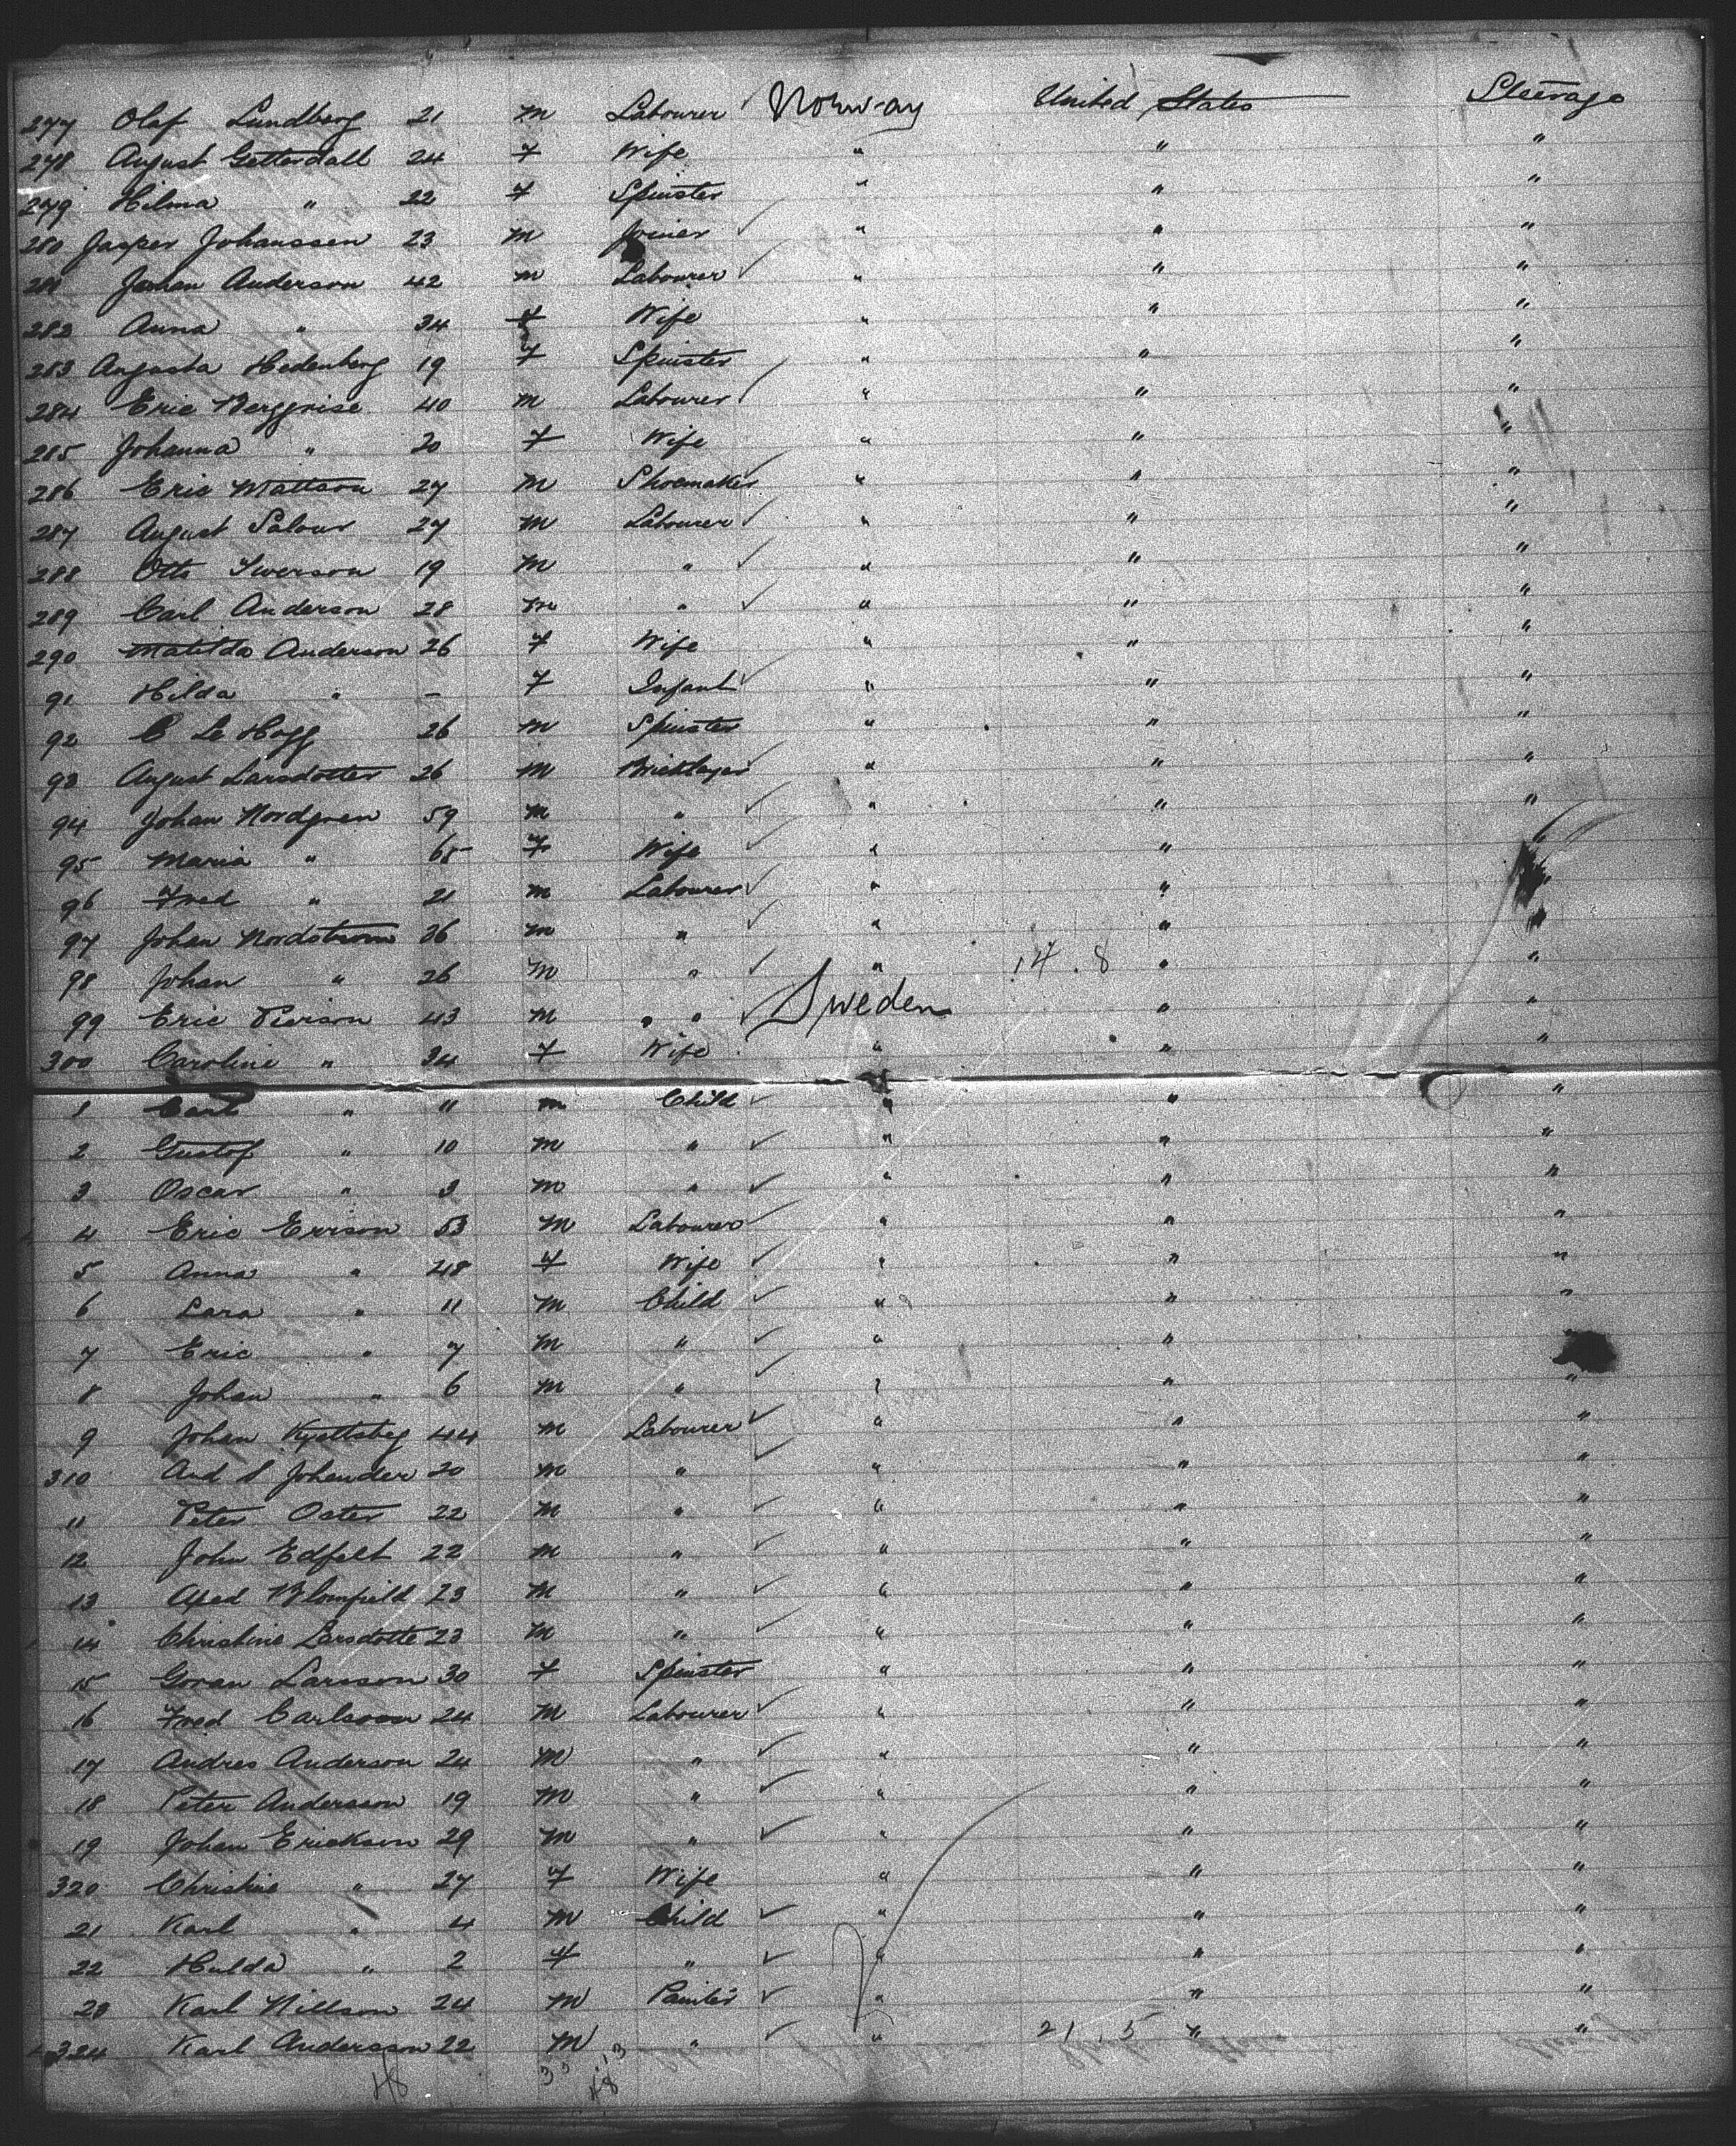 277 Olaf Lundberg 21 m Labourer ✓ Norway United States Steerage
278 August Getterdall 24 f Wife " " "
279 Hilma " 22 f Spinster " " "
280 Jasper Johanssen 23 m Joiner ✓ " " "
281 Johan Anderson 42 m Labourer ✓ " " "
282 Anna " 34 f Wife " " "
283 Augusta Hedenberg 19 f Spinster " " "
284 Eric 40 m Labourer ✓ " " "
285 Johanna " 20 f Wife " " "
286 Eric Mattson 27 m Shoemaker ✓ " " "
287 August 27 m Labourer ✓ " " "
288 Otto Iverson 19 m " ✓ " " "
289 Carl Anderson 28 m " ✓ " " "
290 Matilda Anderson 26 f Wife " " "
91 Hilda " – f Infant ✓ " " "
92 C Le Hogg 26 m Spinster " " "
93 August Larsdotter 26 m Bricklayer ✓ " " "
94 Johan Nordgren 59 m " ✓ " " "
95 Maria " 65 f Wife ✓ " " "
96 Fred " 21 m Labourer ✓ " " "
97 Johan Nordstrom 36 m " ✓ " " "
98 Johan " 26 m " ✓ " 14 . 8 " "
99 Eric Pierson 43 m " " ✓ Sweden " "
300 Caroline " 34 f Wife " " "
1 Carl " 11 m Child ✓ " " "
2 Gustof " 10 m " ✓ " " "
3 Oscar " 3 m " ✓ " " "
4 Eric Errson 53 m Labourer ✓ " " "
5 Anna " 48 f Wife ✓ " " "
6 Lars " 11 m Child ✓ " " "
7 Eric " 7 m " ✓ " " "
8 Johan " 6 m " ✓ " " "
9 Johan 44 m Labourer ✓ " " "
310 And S Johander 20 m " ✓ " " "
11 Peter Oster 22 m " ✓ " " "
12 John Edfelt 22 m " ✓ " " "
13 Axed Blomfield 23 m " ✓ " " "
14 Christine Larsdotte 23 m " ✓ " " "
15 Goran Larsson 30 f Spinster " " "
16 Fred Carlsson 24 m Labourer ✓ " " "
17 Andres Anderson 24 m " ✓ " " "
18 Peter Andersson 19 m " ✓ " " "
19 Johan Erickson 29 m " ✓ " " "
320 Christine " 27 f Wife " " "
21 Karl " 4 m Child ✓ " " "
22 Hulda " 2 f " ✓ " " "
23 Karl Nillson 24 m Painter ✓ " " "
324 Karl Andersson 22 m " ✓ " 21 . 5 " "
48 35 13
48